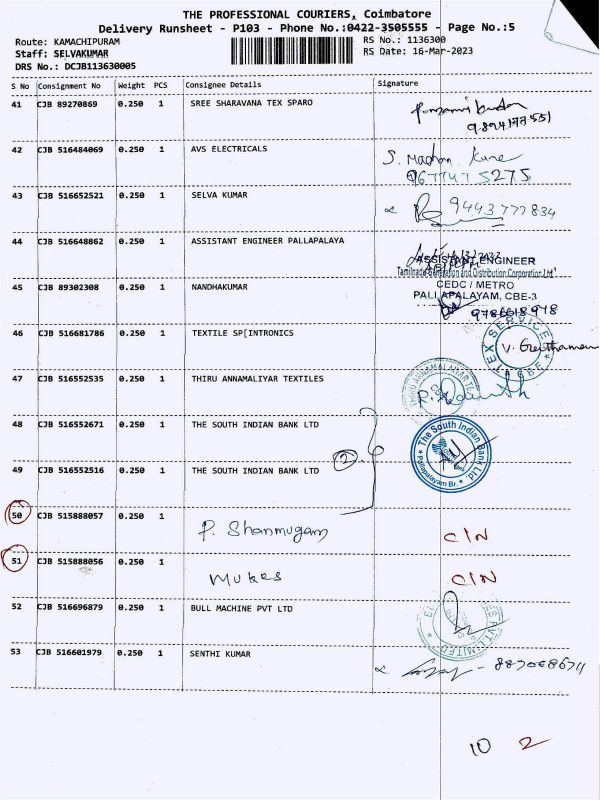 THE PROFESSIONAL COURIERS, Coimbatore
Delivery Runsheet - P103 - Phone No.:0422-3505555 - Page No.:5
Route: KAMACHIPURAM
RS No.: 1136300
Staff: SELVAKUMAR
RS Date: 16-Mar-2023
DRS No.: DCJB113630005
S No Consignment No Weight PCS Consignee Details Signature
41 CJB 89270869 0.250 1 SREE SHARAVANA TEX SPARO
42 CJB 516484069 0.250 1 AVS ELECTRICALS
S. Madhan
43 CJB 516652521 0.250 1 SELVA KUMAR
9443777834
44 CJB 516648862 0.250 1 ASSISTANT ENGINEER PALLAPALAYA
ASSISTANT ENGINEER
Tamilnadu Generation and Distribution Corporation Ltd
45 CJB 89302308 0.250 1 NANDHAKUMAR
CEDC / METRO
PALLAPALAYAM, CBE-3
46 CJB 516681786 0.250 1 TEXTILE SP[INTRONICS
TEX SERVICE
47 CJB 516552535 0.250 1 THIRU ANNAMALIYAR TEXTILES
48 CJB 516552671 0.250 1 THE SOUTH INDIAN BANK LTD
The South Indian Bank Ltd.
Pallapalayam Br.
49 CJB 516552516 0.250 1 THE SOUTH INDIAN BANK LTD
2
50 CJB 515888057 0.250 1
P. Shanmugam C/N
51 CJB 515888056 0.250 1
Mukes C/N
52 CJB 516696879 0.250 1 BULL MACHINE PVT LTD
53 CJB 516601979 0.250 1 SENTHI KUMAR
10 2